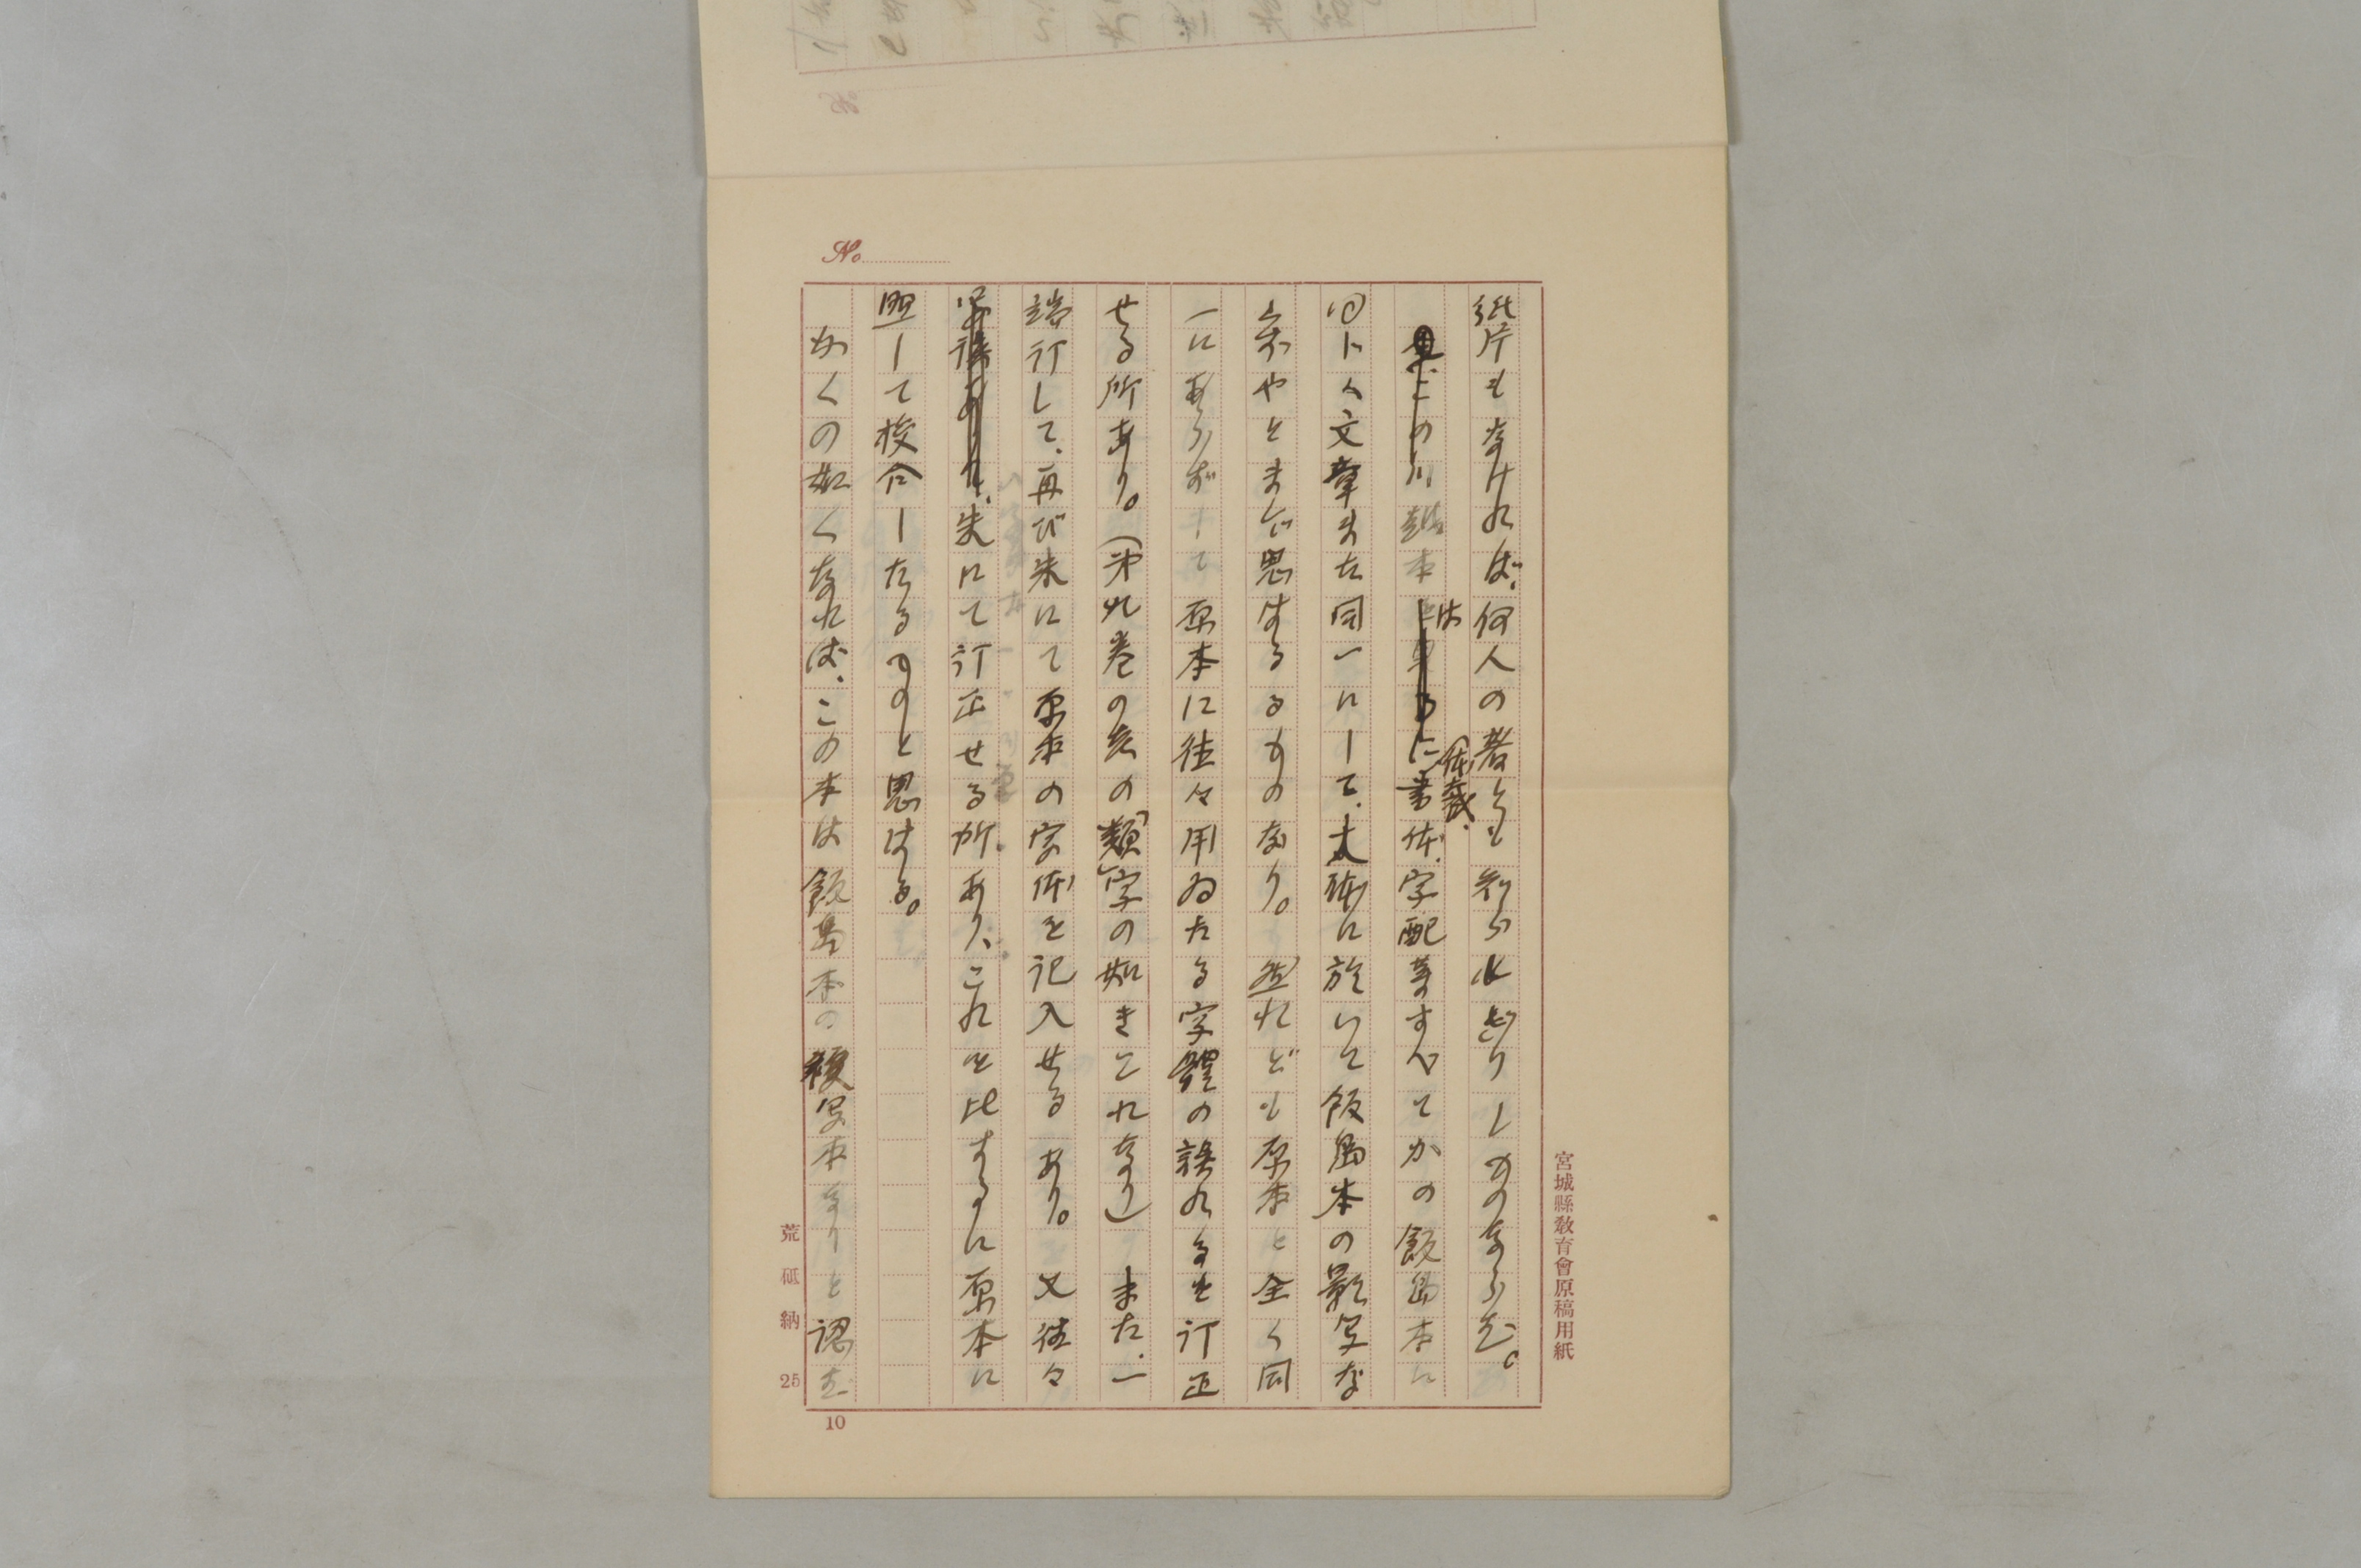 No.
紙片もなければ、何人の著とも知られざりしものならむ。
この川越本は体裁、書体、字配等すべてかの飯島本に
同じく文章また同一にして、大体に於いて飯島本の影写な
らずやとまで思はるるものなり。然れども原本と全く同
一にあらずして原本に往々用ゐたる字體の誤れるを訂正
せる所あり。(第九巻の糸の「類」字の如きこれなり)また、一
端訂して、再び朱にて原本の字体を記入せるあり。又往々
朱にて訂正せる所あり、これを比するに原本に
照して校合したるものと思はる。
かくの如くなれば、この本は飯島本の複写本なりと認む
宮城縣教育會原稿用紙
荒砥納
25
10